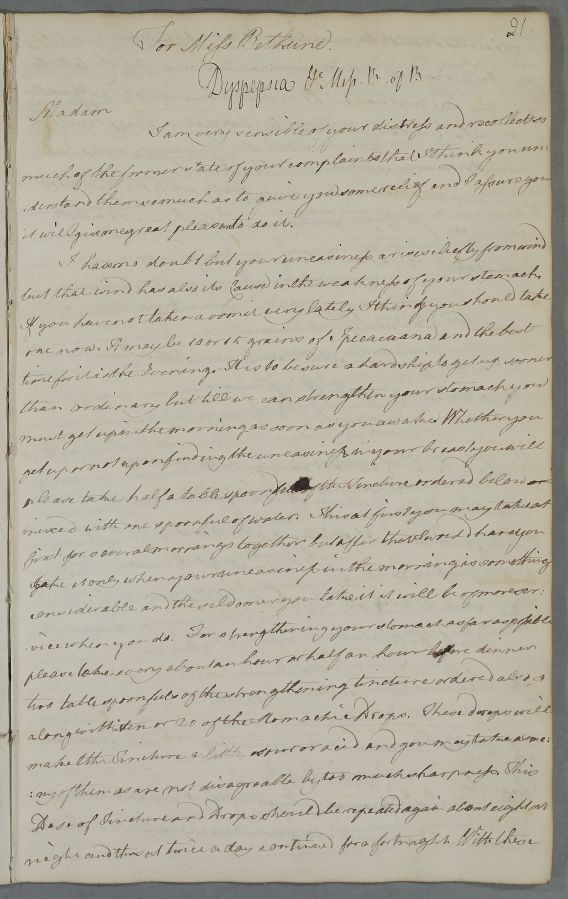 21.
For Miss Bethune.
Dyspepsia
Madam
I am very sensible of your distress and recollect so
much of the former state of your complaints that I think you un:
:derstand them so much as to give you some relief and I assure you
it will give me great pleasure to do it.
I have no doubt but your uneasiness arises chiefly from wind
but that wind has also its Cause in the weakness of your stomach.
If you have not taken a vomit very lately I think you should take
one now. It may be 10 or 15 grains of Ipecacuana and the best
time for it is the Evening. It is to be sure a hardship to get up sooner
than ordinary but till we can strengthen your stomach you
must get up in the morning as soon as you awake. Whether you
get up or not upon finding the uneasiness in your breast you will
please take half a tablespoonful of the Tincture ordered below
mixed with one spoonful of water. This at first you may take at
first for several mornings together but after that I would have you
take it only when your uneasiness in the morning is something
considerable and the seldomer you take it it will be of more ser:
:vice when you do. For strengthening your stomach as far as possible
please take every about an hour or half an hour before dinner
two tablespoonfuls of the strengthening tincture ordered also
along with ten or 20 of the Stomachic Drops. These drops will
make the Tincture a little sour or acid and you may take as ma:
:ny of them as are not disagreable by too much sharpness. This
Dose of Tincture and Drops should be repeated again about eight at
night and thus at twice a day continued for a fortnight. With these